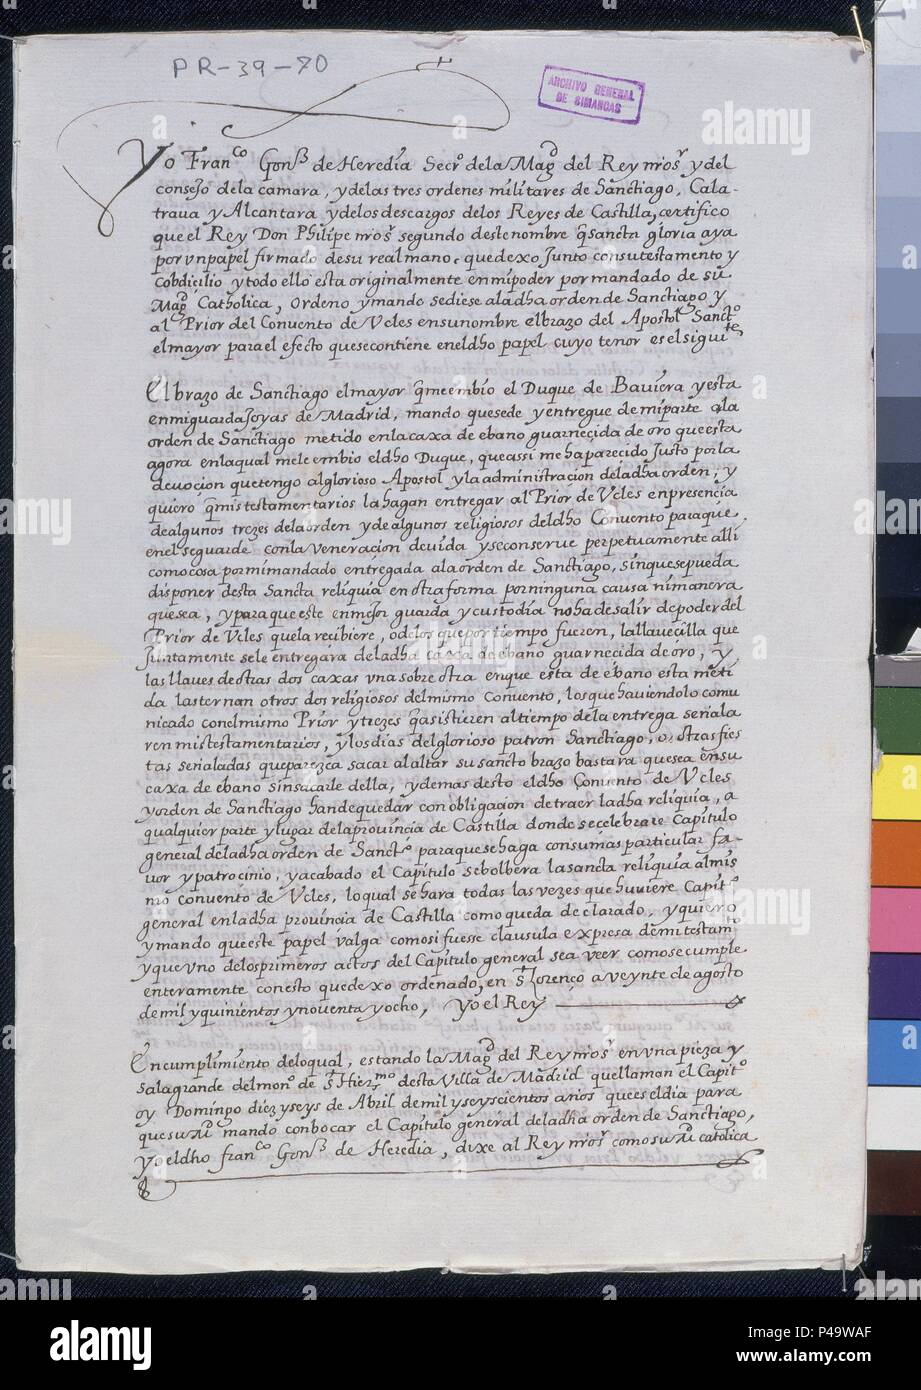 PR-39-70
ARCHIVO GENERAL
DE SIMANCAS
Yo Fran.co Gonz de Heredia Secr.o dela Mag.d del Rey nro s.r y del
consejo dela camara, y delas tres ordenes militares de Sanctiago, Cala-
traua y Alcantara y delos descargos delos Reyes de Castilla, certifico
que el Rey Don Philipe nro s.r segundo deste nombre q sancta gloria aya
por vn papel firmado de su real mano, que dexo Junto con su testamento y
cobdicilio y todo ello esta originalmente en mi poder por mandado de su
Mag.d Catholica, Ordeno y mando se diese a la dha orden de Sanctiago y
al Prior del Conuento de Vcles en su nombre el brazo del Apostol Sanct.o
el mayor para el efecto que se contiene en el dho papel cuyo tenor es el siguite
El brazo de Sanctiago el mayor q me embio el Duque de Bauiera y esta
en mi guardaJoyas de Madrid, mando que se de y entregue de mi parte a la
orden de Sanctiago metido en la caxa de ebano guarnecida de oro que esta
agora en la qual me le embio el dho Duque, que assi me ha parecido Justo por la
deuocion que tengo al glorioso Apostol, y la administracion de la dha orden; y
quiero q mis testamentarios la hagan entregar al Prior de Vcles en presencia
de algunos trezes de la orden y de algunos religiosos del dho Conuento para que
en el se guarde con la veneracion deuida y se conserue perpetuamente alli
como cosa por mi mandado entregada a la orden de Sanctiago, sin que se pueda
disponer desta Sancta reliquia en otra forma por ninguna causa ni manera
que sea, y para que este en mejor guarda y custodia no ha de salir de poder del
Prior de Vcles que la recibiere, o de los que por tiempo fueren, la llauecilla que
Juntamente se le entregara de la dha caxa de ebano guarnecida de oro; y
las llaues de otras dos caxas vna sobre otra en que esta de ebano esta meti
da las ternan otros dos religiosos del mismo Conuento, los que hauiendolo comu
nicado con el mismo Prior y trezes q asistieren al tiempo de la entrega señala
ren mis testamentarios, y los dias del glorioso patron Sanctiago, o otras fies
tas señaladas que parezca sacar al altar su sancto brazo bastara que sea en su
caxa de ebano sin sacarle della, y demas desto el dho Conuento de Vcles
y orden de Sanctiago han de quedar con obligacion de traer la dha reliquia, a
qualquier parte y lugar de la prouincia de Castilla donde se celebrare Capitulo
general de la dha orden de Sanct.o para que se haga con su mas particular fa-
uor y patrocinio, y acabado el Capitulo se bolbera la sancta reliquia al mis
mo conuento de Vcles, lo qual se hara todas las vezes que huuiere Capit.o
general en la dha prouincia de Castilla como queda declarado, y quiero
y mando que este papel valga como si fuesse clausula expresa de mi testam.to
y que vno de los primeros actos del Capitulo general sea veer como se cumple
enteramente con esto que dexo ordenado, en s.t Lorenço a veynte de agosto
de mil y quinientos y nouenta y ocho, Yo el Rey
En cumplimiento de lo qual, estando la Mag.d del Rey nro s.r en vna pieza y
sala grande del mon.o de s.t Hier.mo desta Villa de Madrid que llaman el Capit.o
oy Domingo diez y seys de Abril de mil y seyscientos años que es el dia para
que su M.d mando conbocar el Capitulo general de la dha orden de Sanctiago,
yo el dho fran.co Gonz de Heredia, dixe al Rey nro s.r como su M.d catolica
alamy
Image ID: P49WAF
www.alamy.com